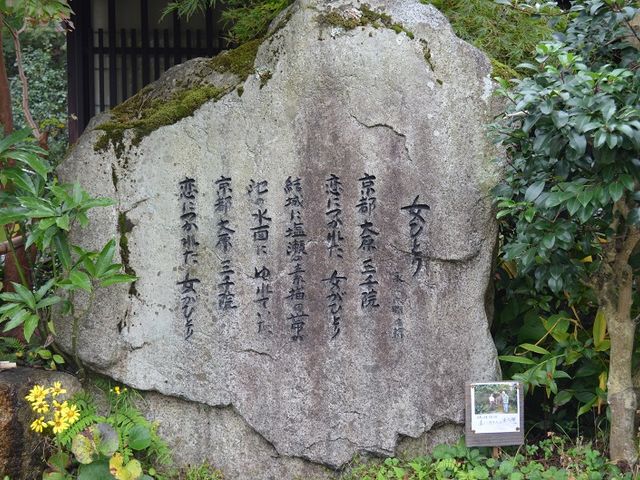 女ひとり
京都 大原 三千院
恋につかれた 女がひとり
結城に塩瀬の素描の帯が
池の水面に ゆれていた
京都 大原 三千院
恋につかれた 女がひとり